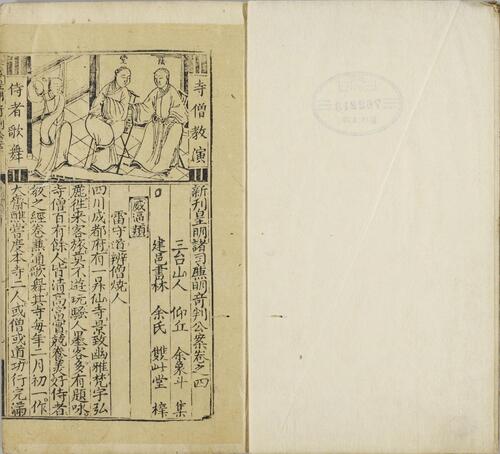 寺僧教演
侍者歌舞
新刊皇明諸司廉明奇判公案卷之四
三台山人 仰丘 余象斗 集
建邑書林 余氏 雙峩堂 梓
威逼類
雷守道辨僧燒人
四川成都府有一昇仙寺景致幽雅梵宇弘
麗徃來客旅莫不遊玩騷人墨客多有題咏
寺僧百有餘人皆清高富實競養美好侍者
敎之經卷兼通歌舞其寺每年二月初一作
大齋醮當度本寺二人或僧或道功行完滿
762213